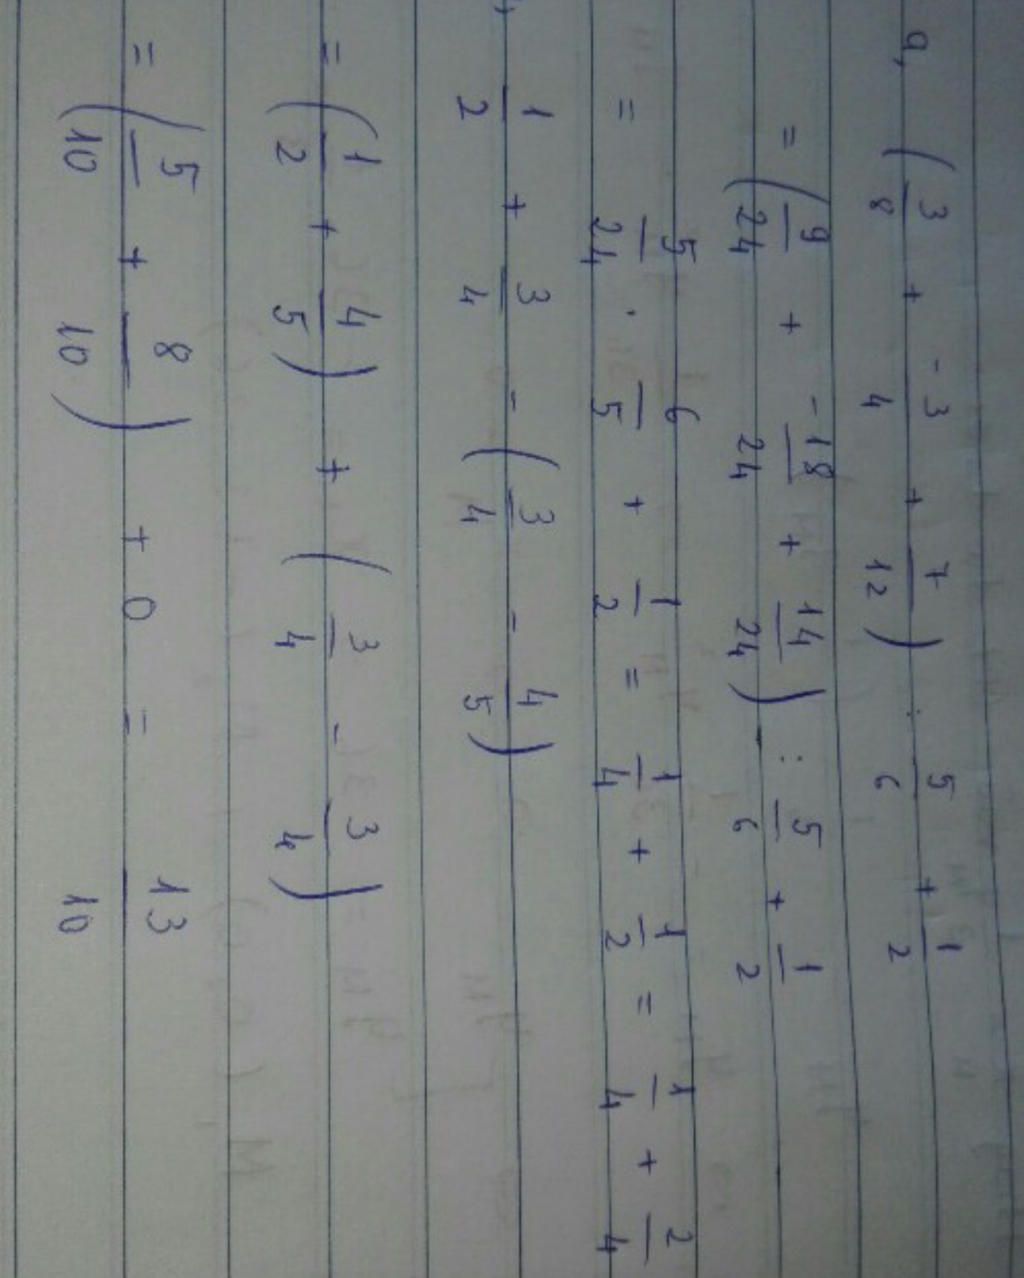 a, (3/8 + -3/4 + 7/12) : 5/6 + 1/2
= (9/24 + -18/24 + 14/24) : 5/6 + 1/2
= 5/24 . 6/5 + 1/2 = 1/4 + 1/2 = 1/4 + 2/4
1/2 + 3/4 - (3/4 - 4/5)
= (1/2 + 4/5) + (3/4 - 3/4)
= (5/10 + 8/10) + 0 = 13/10